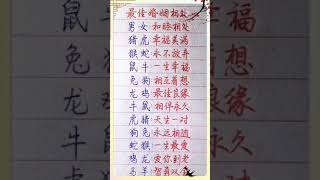 最佳婚姻相处
男女和睦相处
猪虎幸福美满
猴蛇永不放弃
鼠牛一生幸福
兔狗相互着想
龙鸡最佳良缘
牛鼠相伴永久
虎猪天生一对
狗兔永远相随
蛇猴一生最爱
鸡龙爱你到老
马羊智勇双全